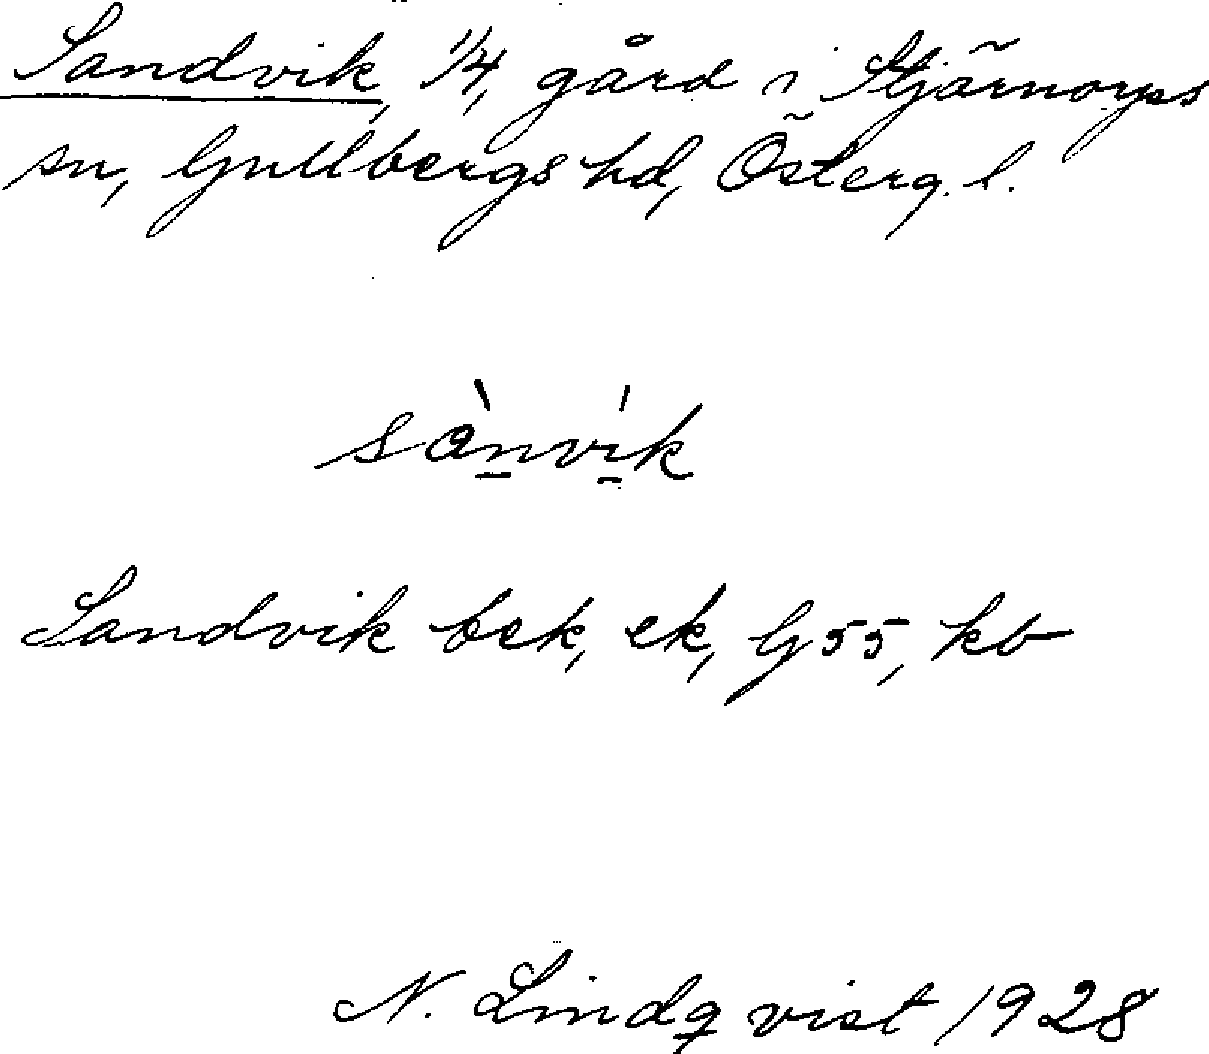 Sandvik, 1/4, gård i Stjärnorps
sn, Gullbergs hd, Österg. l.
sànvík
Sandvik bek, ek, G55, kb
N. Lindqvist 1928